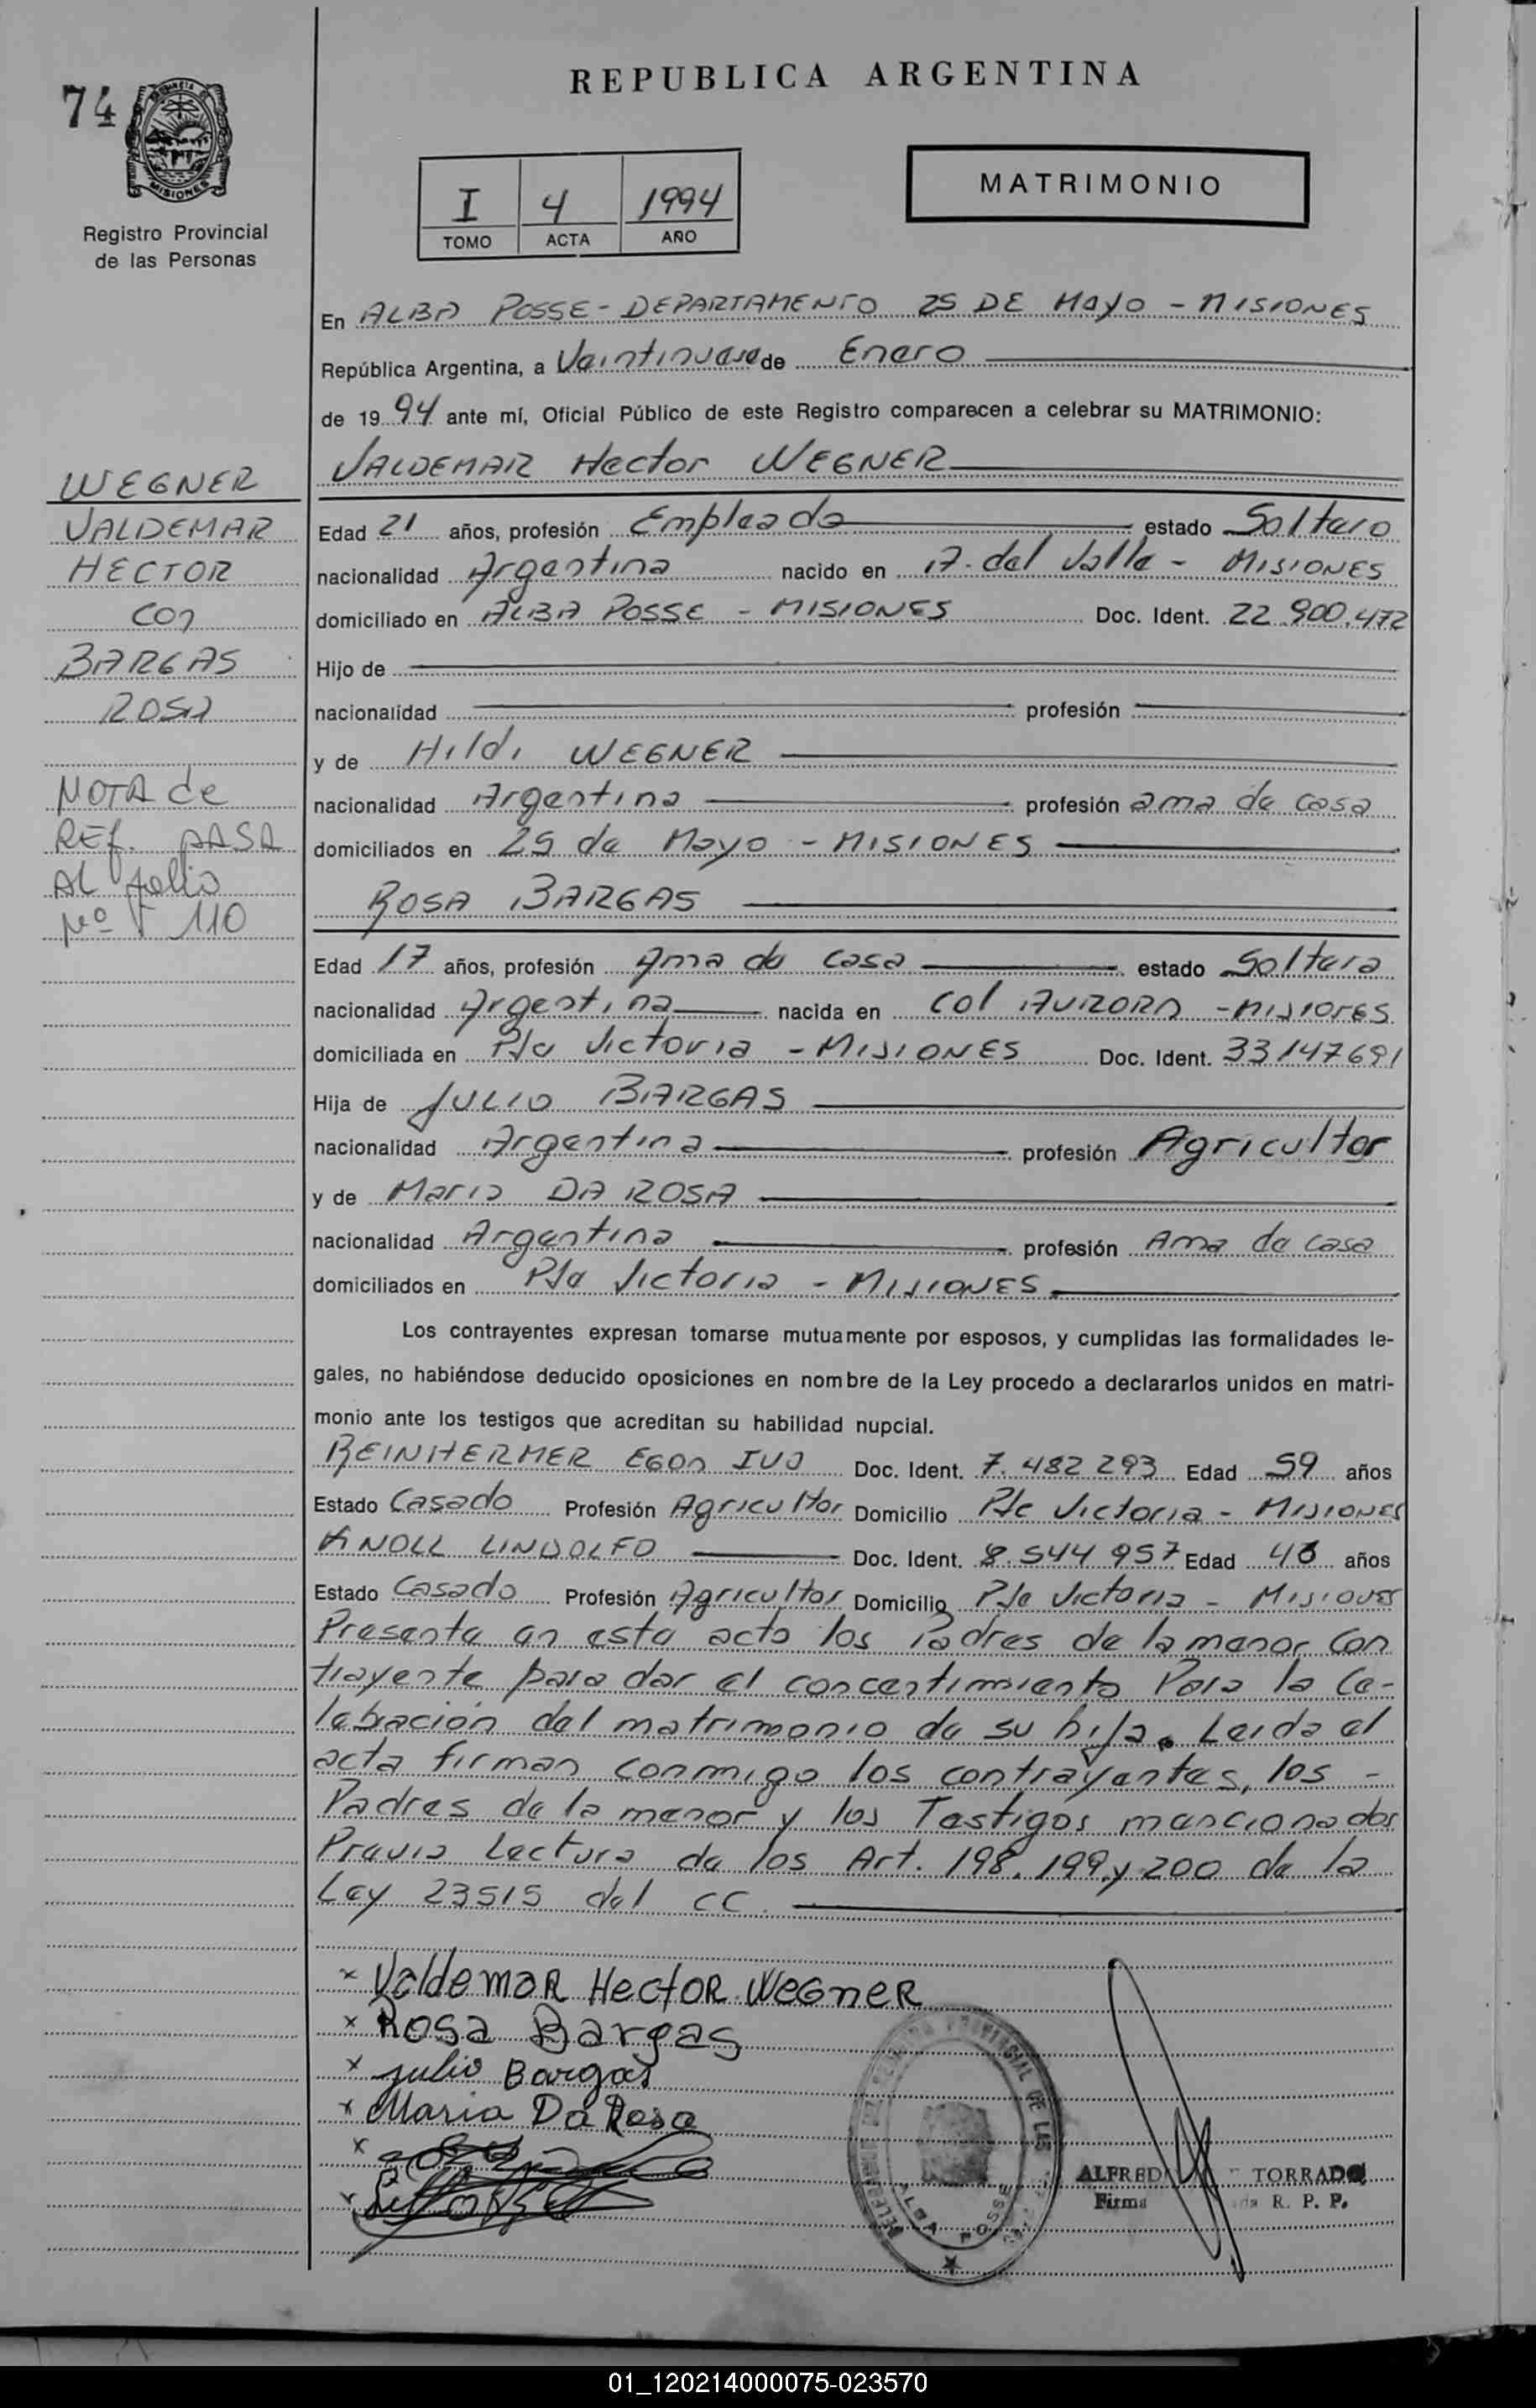 REPUBLICA ARGENTINA
74
MISIONES
Registro Provincial
de las Personas
I 4 1994
TOMO ACTA AÑO
MATRIMONIO
En ALBA POSSE - DEPARTAMENTO 25 DE MAYO - MISIONES
República Argentina, a Veintinueve de Enero
de 19 94 ante mí, Oficial Público de este Registro comparecen a celebrar su MATRIMONIO:
VALDEMAR Hector WEGNER
WEGNER
VALDEMAR
HECTOR
con
BARGAS
ROSA
NOTA de
REf. PASA
AL folio
Nº 110
Edad 21 años, profesión Empleado estado Soltero
nacionalidad Argentina nacido en A. del Valle - MISIONES
domiciliado en ALBA POSSE - MISIONES Doc. Ident. 22.900.472
Hijo de
nacionalidad profesión
y de Hildi WEGNER
nacionalidad Argentina profesión ama de casa
domiciliados en 25 de Mayo - MISIONES
ROSA BARGAS
Edad 17 años, profesión Ama de casa estado Soltera
nacionalidad Argentina nacida en Col AURORA - MISIONES
domiciliada en Pto Victoria - MISIONES Doc. Ident. 33147691
Hija de JULIO BARGAS
nacionalidad Argentina profesión Agricultor
y de Maria DA ROSA
nacionalidad Argentina profesión Ama de casa
domiciliados en Pto Victoria - MISIONES
Los contrayentes expresan tomarse mutuamente por esposos, y cumplidas las formalidades le-
gales, no habiéndose deducido oposiciones en nombre de la Ley procedo a declararlos unidos en matri-
monio ante los testigos que acreditan su habilidad nupcial.
REINHERMER EGON IVO Doc. Ident. 7.482 293 Edad 59 años
Estado Casado Profesión Agricultor Domicilio Pto Victoria - MISIONES
KNOLL LINDOLFO Doc. Ident. 8.544 957 Edad 43 años
Estado Casado Profesión Agricultor Domicilio Pto Victoria - MISIONES
Presente en este acto los Padres de la menor Con
trayente para dar el concentimiento Para la Ce-
lebración del matrimonio de su hija. Leida el
acta firman conmigo los contrayentes, los -
Padres de la menor y los Testigos mencionados
Previa Lectura de los Art. 198, 199, y 200 de la
Ley 23515 del CC.
x Valdemar Hector Wegner
x Rosa Bargas
x Julio Bargas
x Maria Da Rosa
x
x
REGISTRO PROVINCIAL DE LAS
ALBA POSSE
ALFRED TORRADO
Firma R. P. P.
01_120214000075-023570